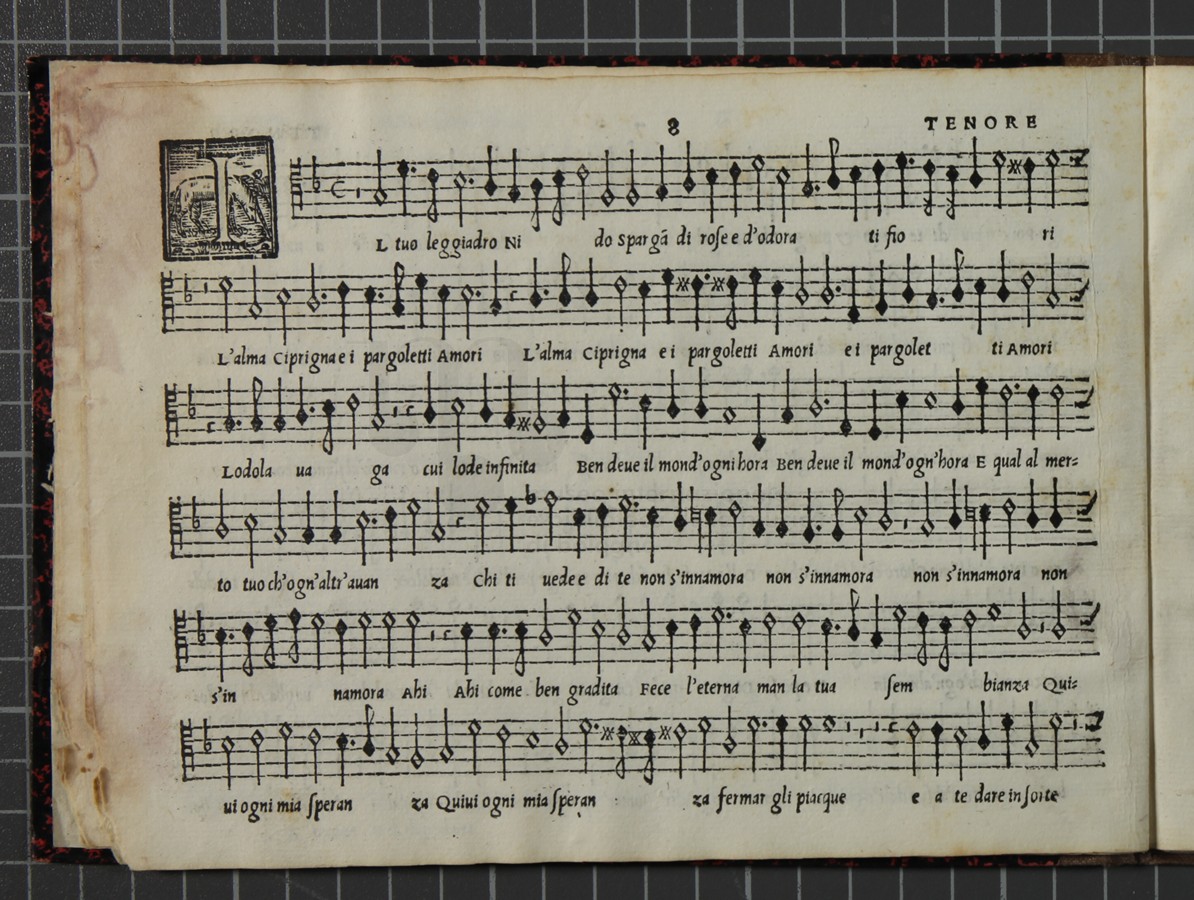 8 TENORE
IL tuo leggiadro Ni do spargã di rose e d'odora ti fio ri
L'alma Ciprigna e i pargoletti Amori L'alma Ciprigna e i pargoletti Amori e i pargolet ti Amori
Lodola ua ga cui lode infinita Ben deue il mond'ogni hora Ben deue il mond'ogn'hora E qual al mer=
to tuo ch'ogn'altr'auan za Chi ti uede e di te non s'innamora non s'innamora non s'innamora non
s'in namora Ahi Ahi come ben gradita Fece l'eterna man la tua sem bianza Qui=
ui ogni mia speran za Quiui ogni mia speran za fermar gli piacque e a te dare in sorte